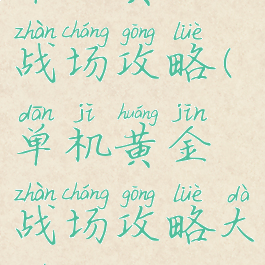 zhàn chǎng gōng lüè
战场攻略(
dān jī huáng jīn
单机黄金
zhàn chǎng gōng lüè dà
战场攻略大